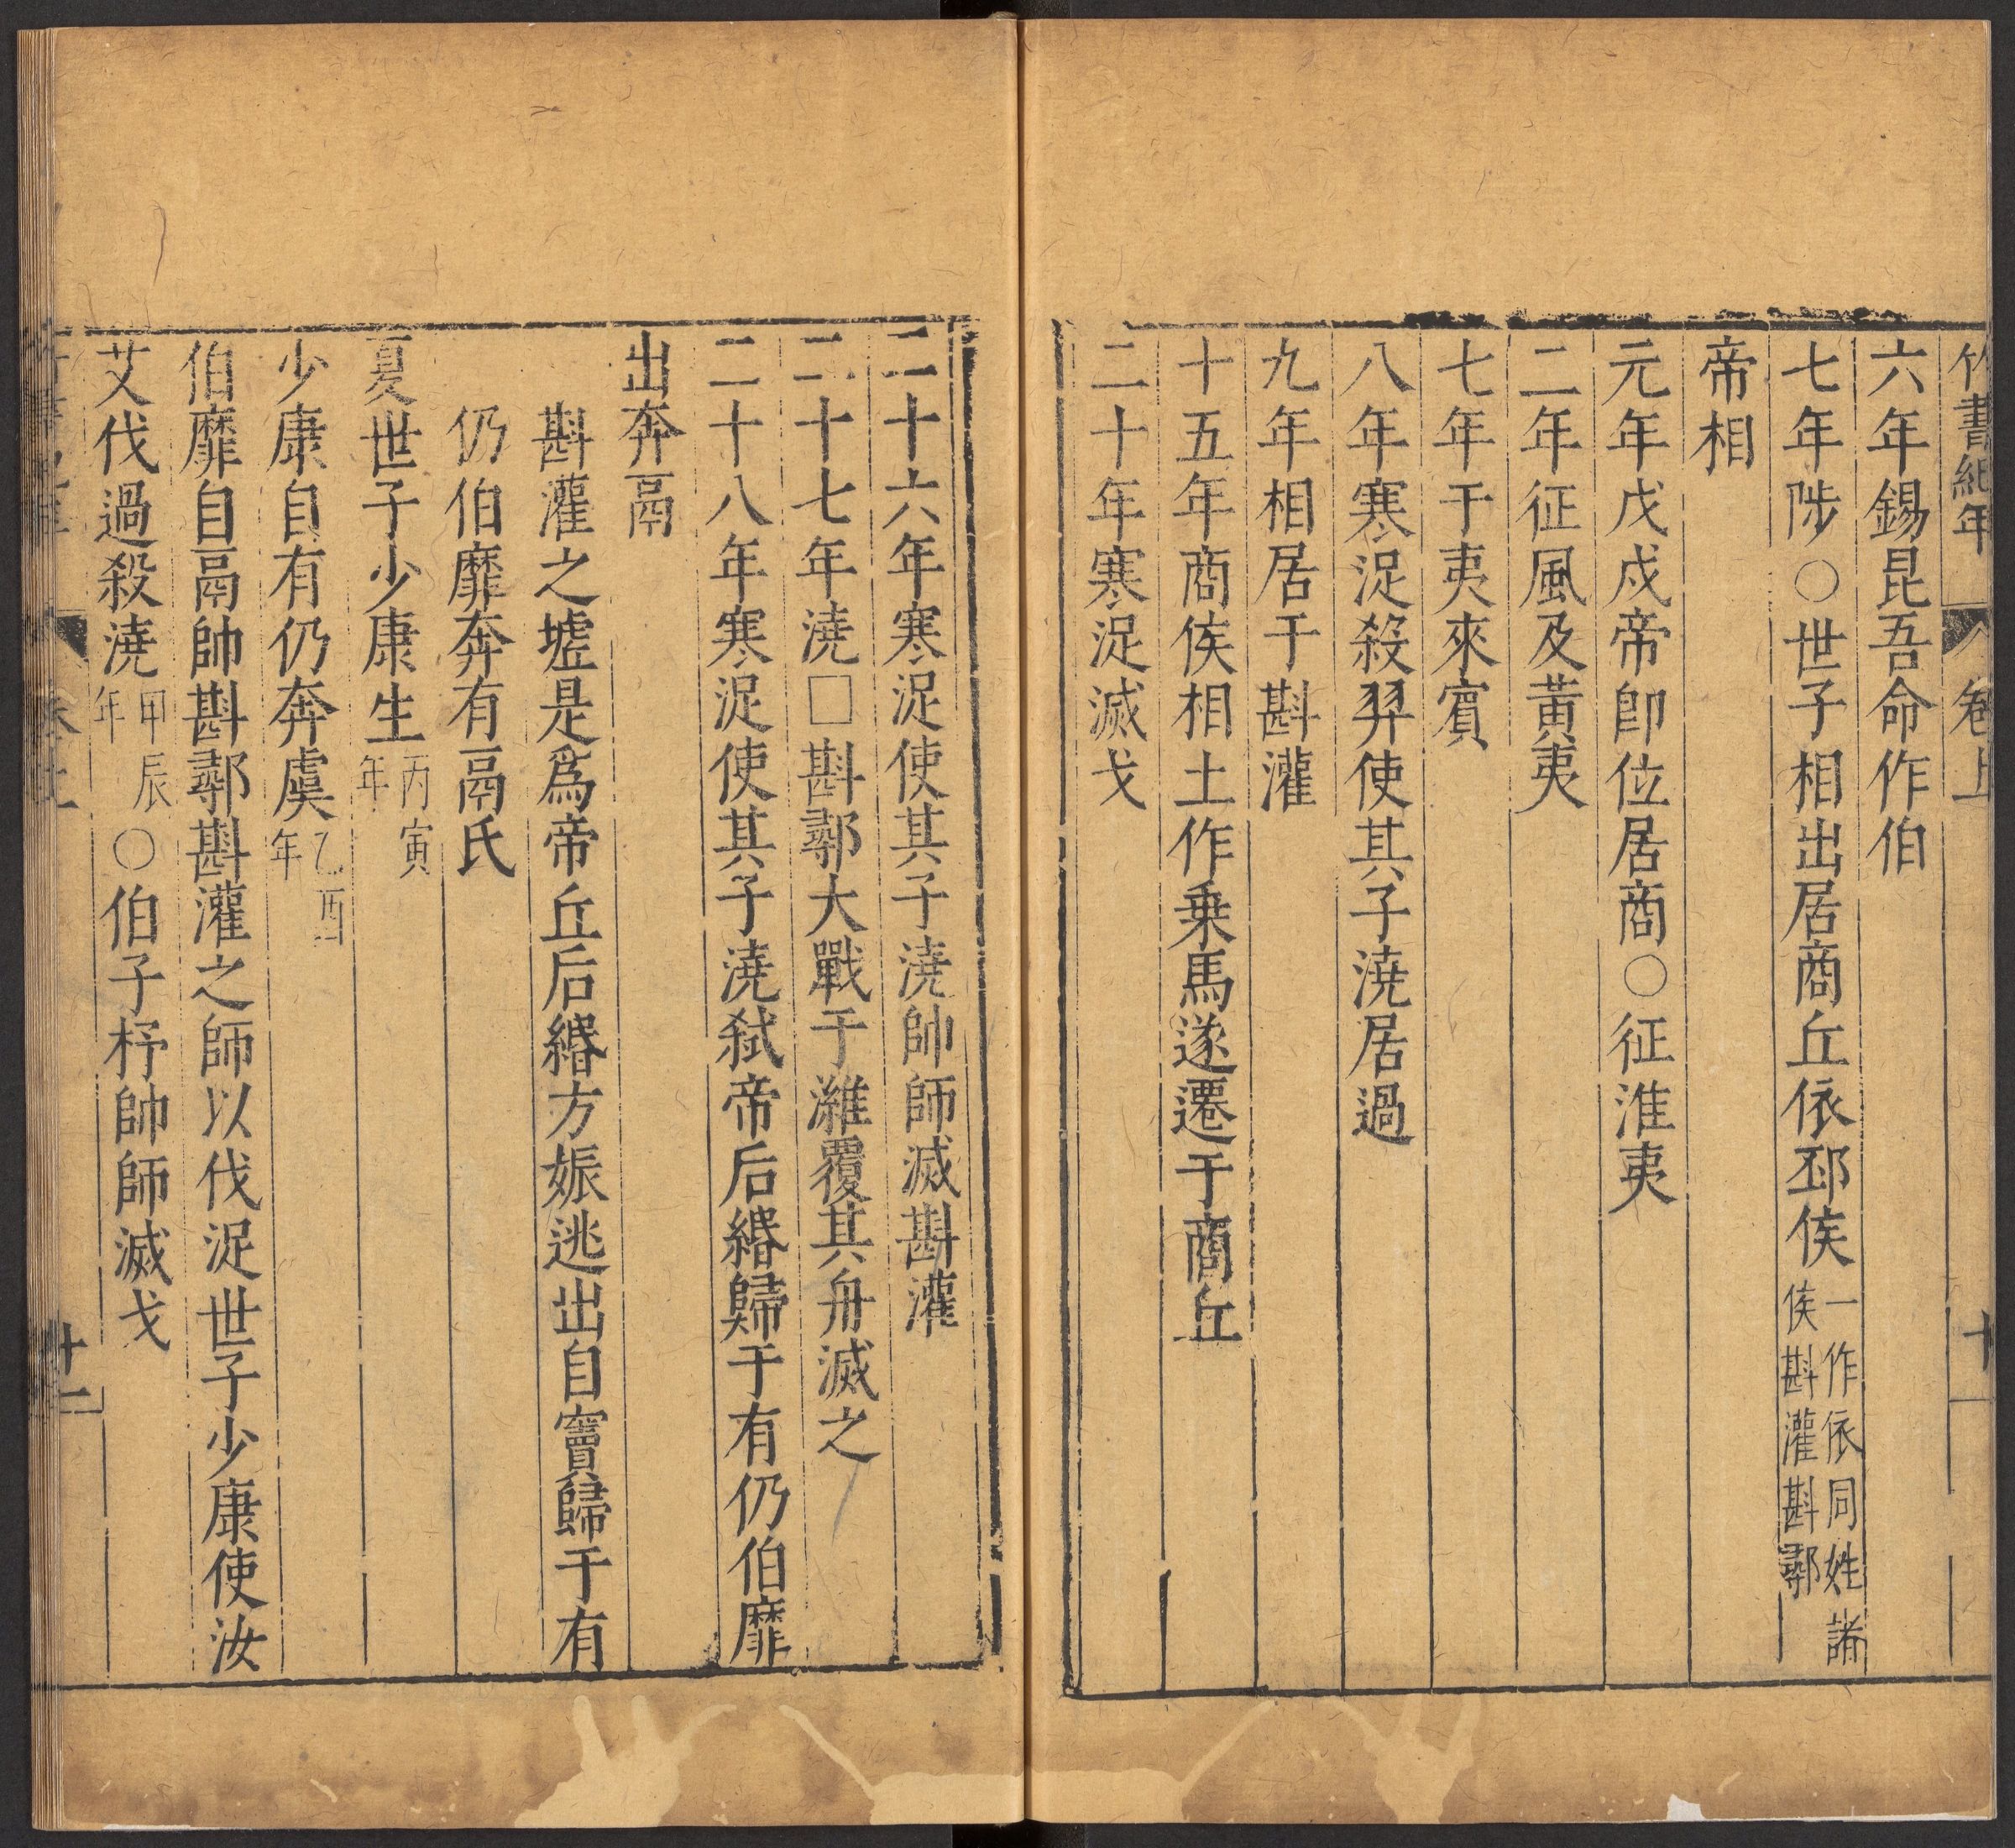 竹書紀年 卷上 十
六年錫昆吾命作伯
七年陟○世子相出居商丘依邳侯一作依同姓諸侯斟灌斟鄩
帝相
元年戊戌帝卽位居商○征淮夷
二年征風及黃夷
七年于夷來賓
八年寒浞殺羿使其子澆居過
九年相居于斟灌
十五年商侯相土作乗馬遂遷于商丘
二十年寒浞滅戈
二十六年寒浞使其子澆帥師滅斟灌
二十七年澆□斟鄩大戰于濰覆其舟滅之
二十八年寒浞使其子澆弑帝后緡歸于有仍伯靡
出奔鬲
斟灌之墟是爲帝丘后緡方娠逃出自竇歸于有
仍伯靡奔有鬲氏
夏世子少康生丙寅年
少康自有仍奔虞乙酉年
伯靡自鬲帥斟鄩斟灌之師以伐浞世子少康使汝
艾伐過殺澆甲辰年○伯子杼帥師滅戈
卷上 十二